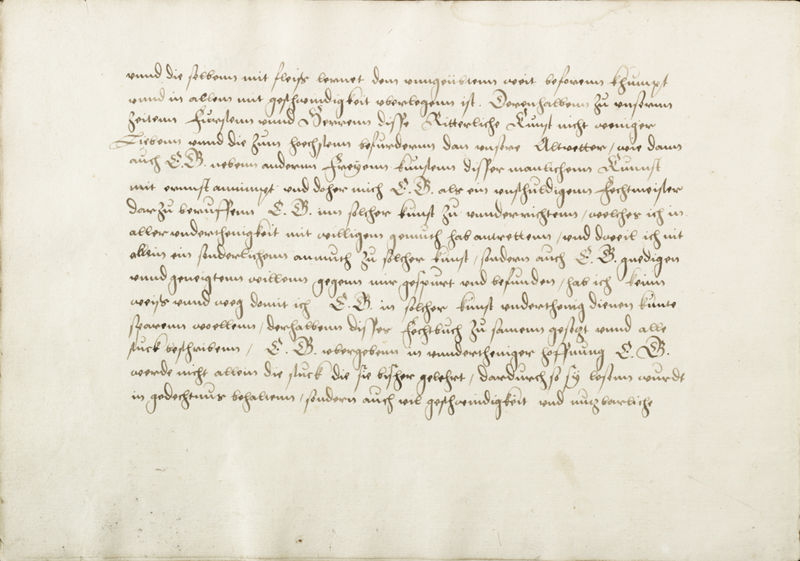 vnnd die selbenn mit fleiss lernet dem vnngeübtenn weit beforenn khumpt
vnnd in allem mit geschwindigkeit vberlegenn ist. Derenhalbenn zu vnsernn
zeitenn Fürstenn vnnd Herrenn disse Ritterliche Kunst nicht weniger
Liebenn vnnd die zum hoechstenn befürdernn dan vnsere Altvetter/ wie dann
auch E. G. nebenn andernn Freyenn künstenn disser manlichenn Kunnst
mit ernnst annimpt vnd doher mich E. G. als ein vnschuldigenn Fechtmeister
darzu beruffenn E. G. inn solcher kunst zu vnnderrichtenn/ welches ich in
aller vnderthenigkeit mit willigem gemüth hab antrettenn/ vnd dweil ich nit
allein ein sonderlichenn anmuth zu solcher kunst/ sondern auch E. G. gnedigen
vnnd geneigtenn willenn gegenn mir gespürt vnd befunden/ hab ich keinn
weiss vnnd weg domit ich E. G. in solcher kunst vnderthenig dienen kunte
sparenn wellenn/ derhalbenn disser Fechtbuch zu samenn gesetzt vnnd alle
stuck beschribenn/ E. G. vbergebenn in vnndertheniger hoffnung E. G.
werde nicht allein die stuck die sie bissher gelehrt/ dardurch so sy lesenn wurdt
in gedechtnus behaltenn/ sondern auch vil geschwindigkeit vnd nutzbarliche